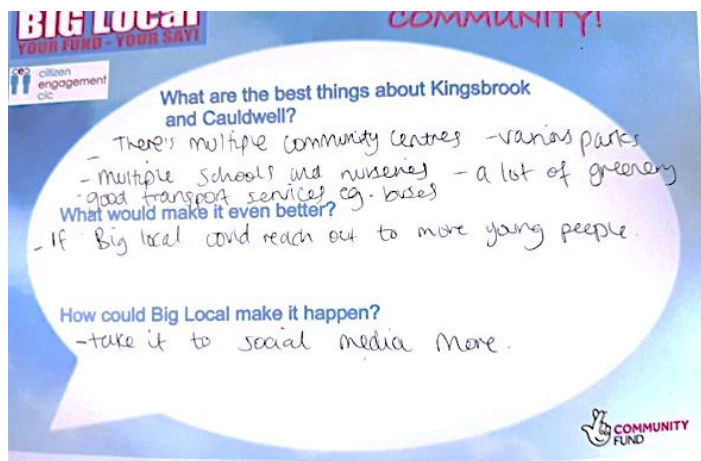 BIG LOCAL
COMMUNITY!
YOUR FUND - YOUR SAY!
cec citizen
engagement
cic
What are the best things about Kingsbrook
and Cauldwell?
- There's multiple community centres - various parks
- multiple schools and nurseries - a lot of greenery
- good transport services eg. buses
What would make it even better?
- If Big local could reach out to more young people.
How could Big Local make it happen?
- take it to social media more.
COMMUNITY
FUND